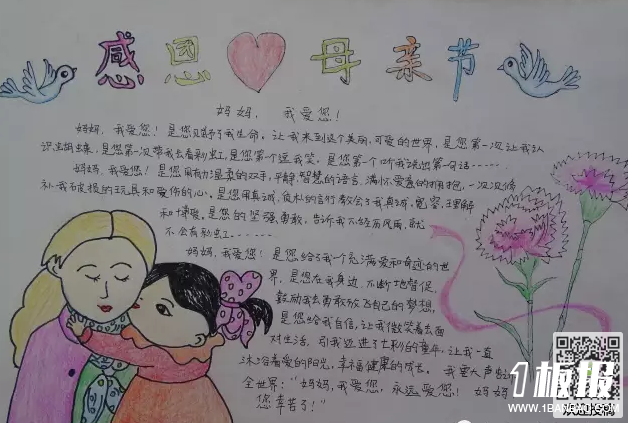 感恩 母亲节
妈妈，我爱您！
妈妈，我爱您！是您赐予了我生命。让我来到这个美丽，可爱的世界，是您第一次让我认
识蝴蝶，是您第一次带我去看彩虹，是您第一个逗我笑，是您第一个听我说出第句话……
妈妈，我爱您！是您用有力温柔的双手，平静，智慧的语言，满怀爱意的拥抱，一次次修
补我破损的玩具和受伤的心。是您用真诚，的言行教会了我真诚，宽容，理解
和博爱。是您的坚强勇敢，告诉我不经历风雨，就
不会有彩虹……
妈妈，我爱您！是您给了我一个充满爱和奇迹的世
界，是您在我身边，不断地督促，
鼓励我去勇敢放飞自己的梦想，
是您给我自信，让我微笑着去面
对生活，引我迈进了七彩的童年，让我一直
沐浴着爱的阳光，幸福健康的成长。我要大声告
全世界：“妈妈，我爱您，永远爱您！妈妈
您辛苦了！”
1板报
WWW.1BANBAO.COM
欢迎投稿